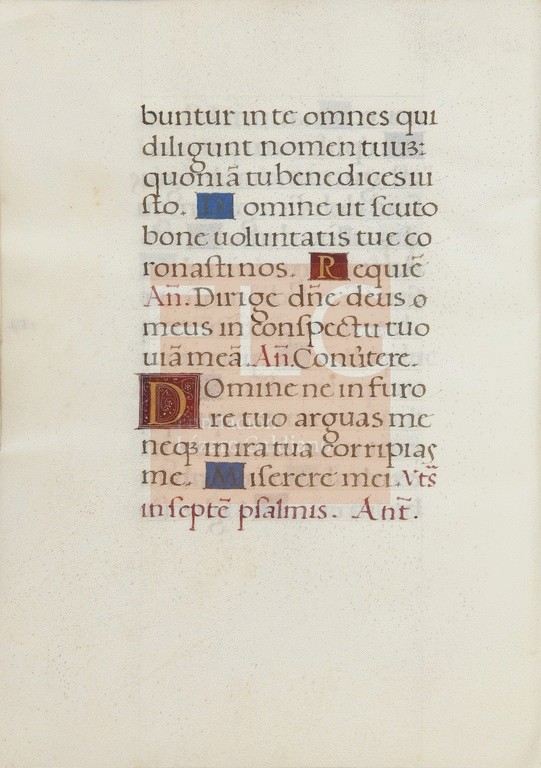 buntur in te omnes qui
diligunt nomen tuuꝫ:
quoniā tu benedices iu
sto. Domine ut scuto
bone uoluntatis tue co
ronasti nos. Requiē
An̄. Dirige dn̄e deus o
meus in conspectu tuo
uiā meā. An̄. Conūtere.
Domine ne in furo
re tuo arguas me
neqꝫ in ira tua corripias
me. Miserere mei. Vts̄
in septē psalmis. Ant̄.
FLC